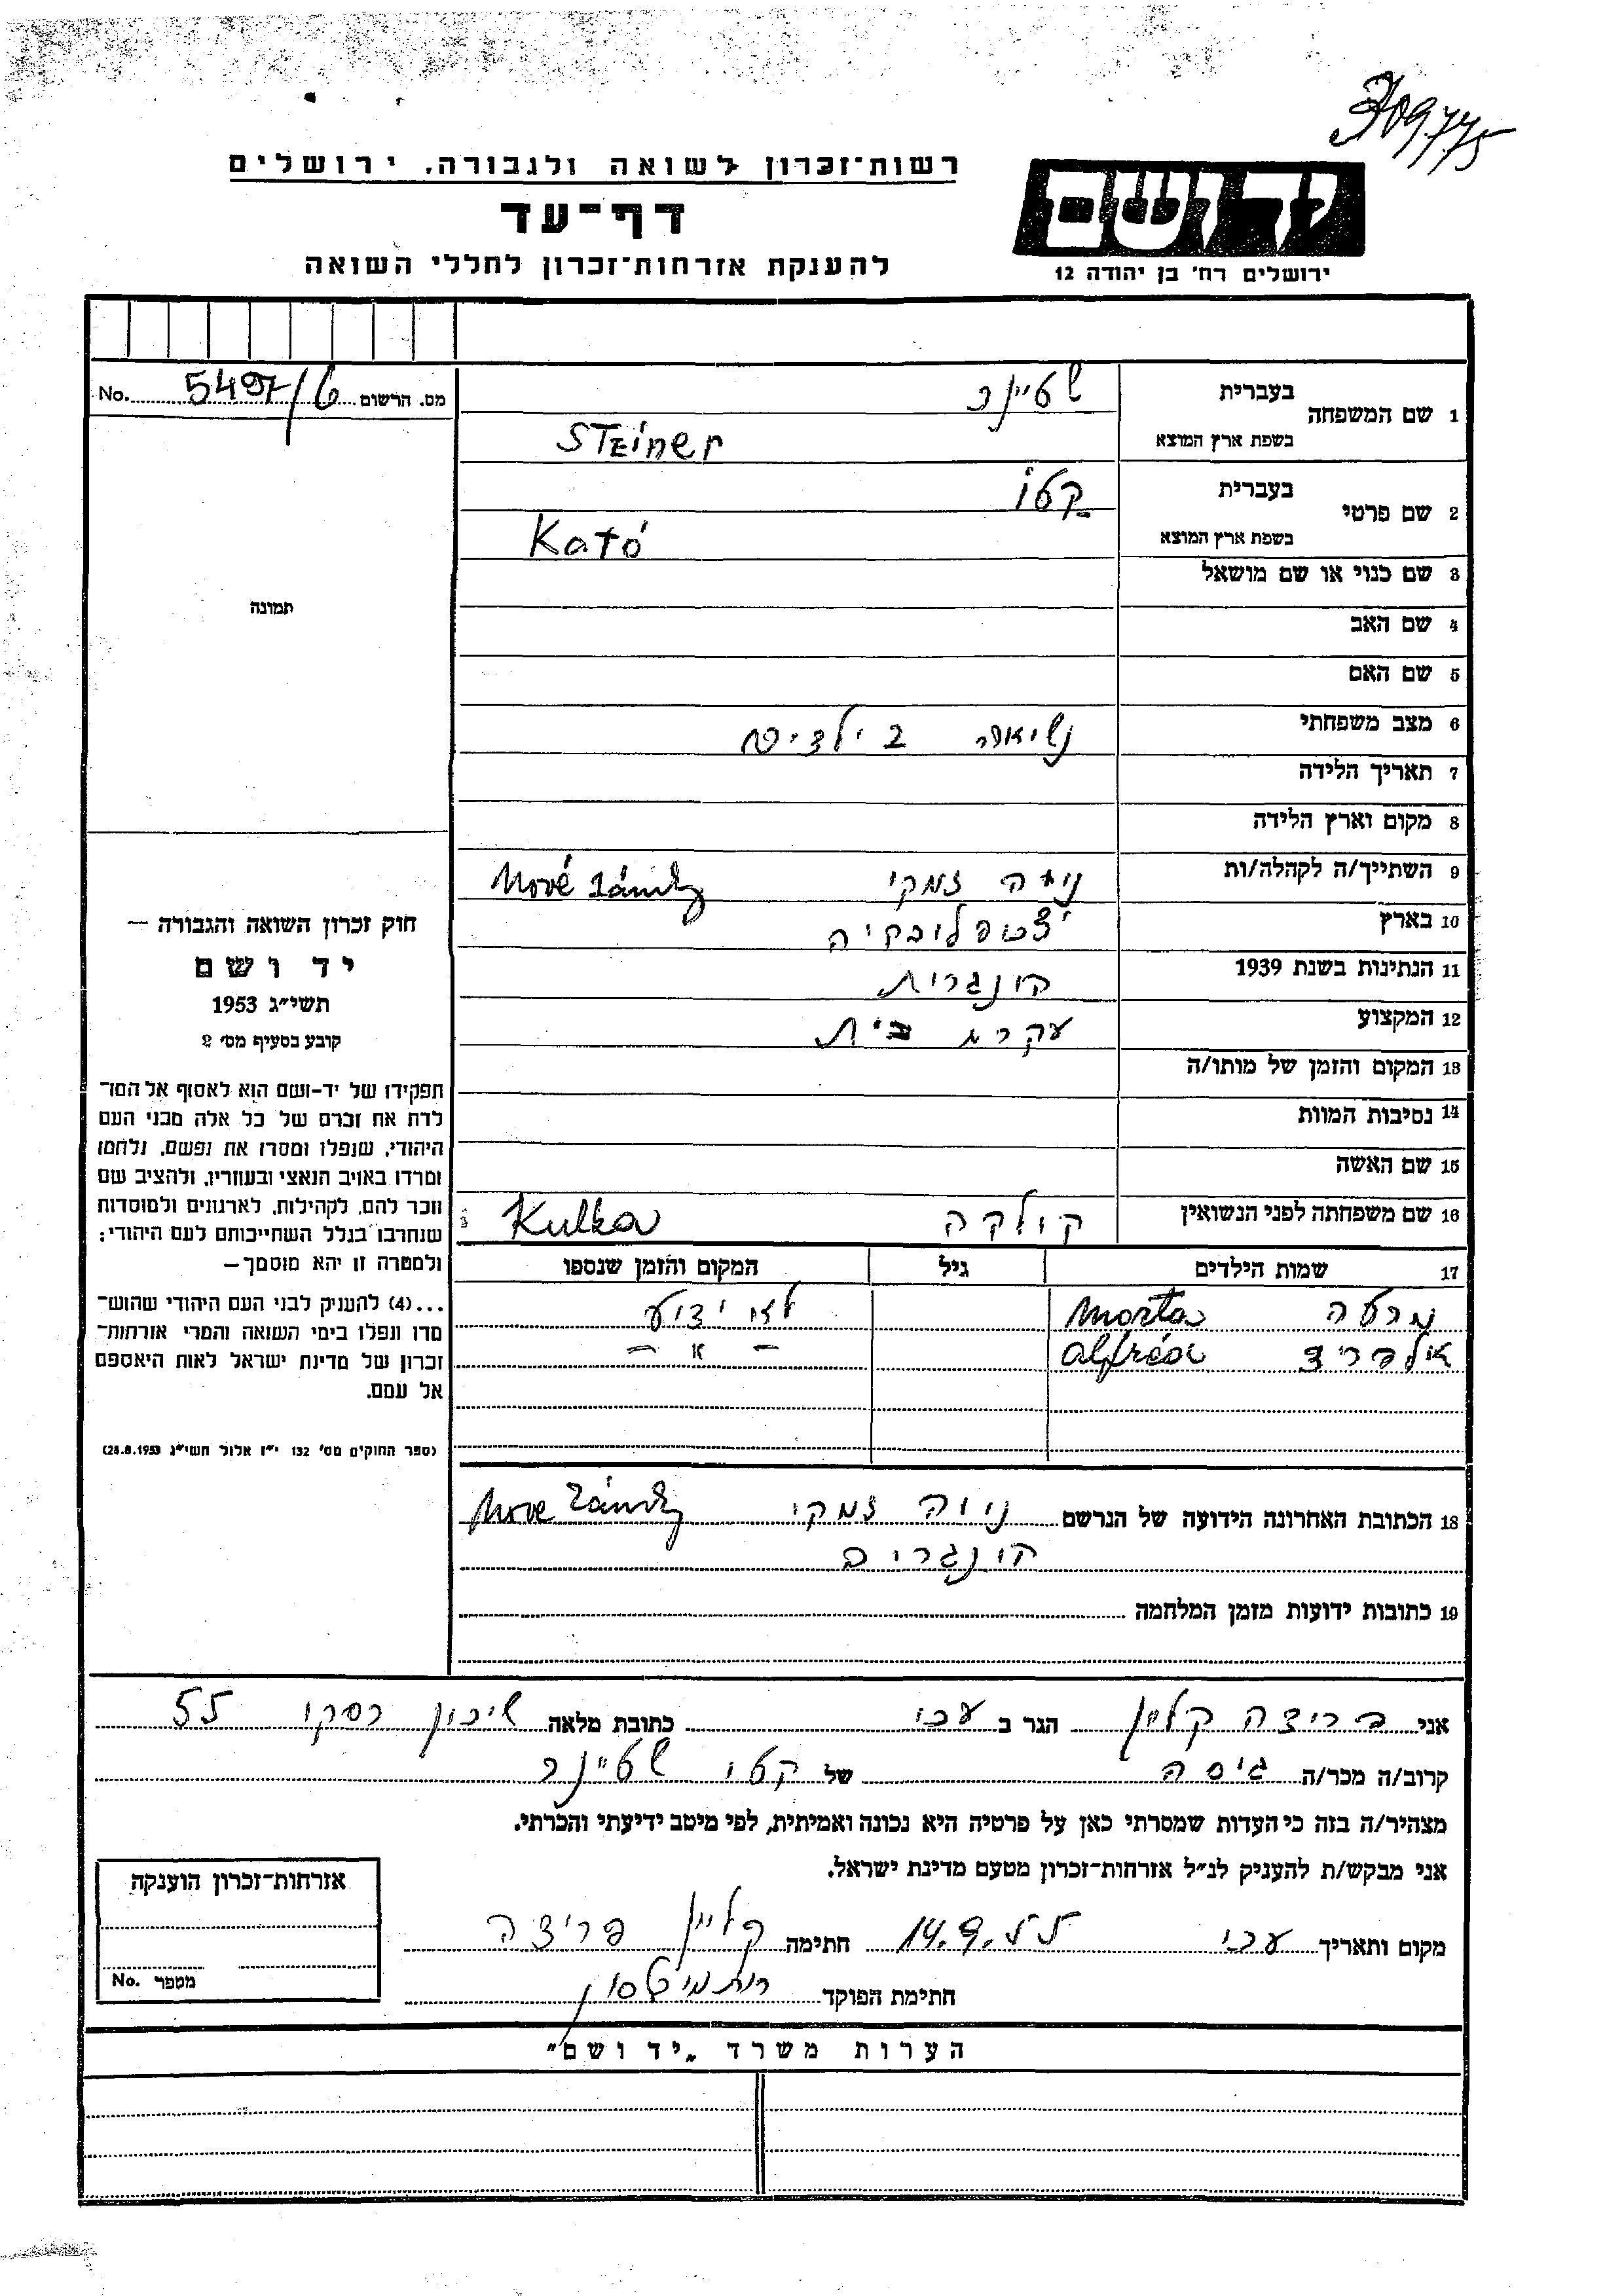 309775
רשות־זכרון לשואה ולגבורה, ירושלים
יד ושם
דף־עד
להענקת אזרחות־זכרון לחללי השואה
ירושלים רח' בן יהודה 12
No. 5497/6 מס. הרשום
1 שם המשפחה בעברית שטיינר
בשפת ארץ המוצא Steiner
2 שם פרטי בעברית קטו
בשפת ארץ המוצא Kató
3 שם כנוי או שם מושאל
תמונה
4 שם האב
5 שם האם
6 מצב משפחתי נשואה 2 ילדים
7 תאריך הלידה
8 מקום וארץ הלידה
9 השתייך/ה לקהלה/ות נויה זמקי Nové Zámky
10 בארץ צ'כוסלובקיה
11 הנתינות בשנת 1939 הונגרית
12 המקצוע עקרת בית
13 המקום והזמן של מותו/ה
14 נסיבות המוות
15 שם האשה
16 שם משפחתה לפני הנשואין קולקה Kulka
17 שמות הילדים גיל המקום והזמן שנספו
מרטה Marta לא ידוע
אלפריד Alfréd – " –
חוק זכרון השואה והגבורה —
יד ושם
תשי"ג 1953
קובע בסעיף מס' 2
תפקידו של יד-ושם הוא לאסוף אל המו־
לדת את זכרם של כל אלה מבני העם
היהודי, שנפלו ומסרו את נפשם, נלחמו
ומרדו באויב הנאצי ובעוזריו, ולהציב שם
וזכר להם, לקהילות, לארגונים ולמוסדות
שנחרבו בגלל השתייכותם לעם היהודי;
ולמטרה זו יהא מוסמך—
...(4) להעניק לבני העם היהודי שהוש־
מדו ונפלו בימי השואה והמרי אזרחות־
זכרון של מדינת ישראל לאות היאספם
אל עמם.
(ספר החוקים מס' 132 י"ז אלול תשי"ג 28.8.1953)
18 הכתובת האחרונה הידועה של הנרשם נויה זמקי Nove Zámky
הונגריה
19 כתובות ידועות מזמן המלחמה
אני פריצה קליין הגר ב עכו כתובת מלאה שיכון רסקו 55
קרוב/ה מכר/ה גיסה של קטו שטיינר
מצהיר/ה בזה כי העדות שמסרתי כאן על פרטיה היא נכונה ואמיתית, לפי מיטב ידיעתי והכרתי.
אני מבקש/ת להעניק לנ"ל אזרחות־זכרון מטעם מדינת ישראל.
מקום ותאריך עכו 14.9.55 חתימה קליין פריצה
חתימת הפוקד
אזרחות־זכרון הוענקה
No. מספר
הערות משרד „יד ושם"